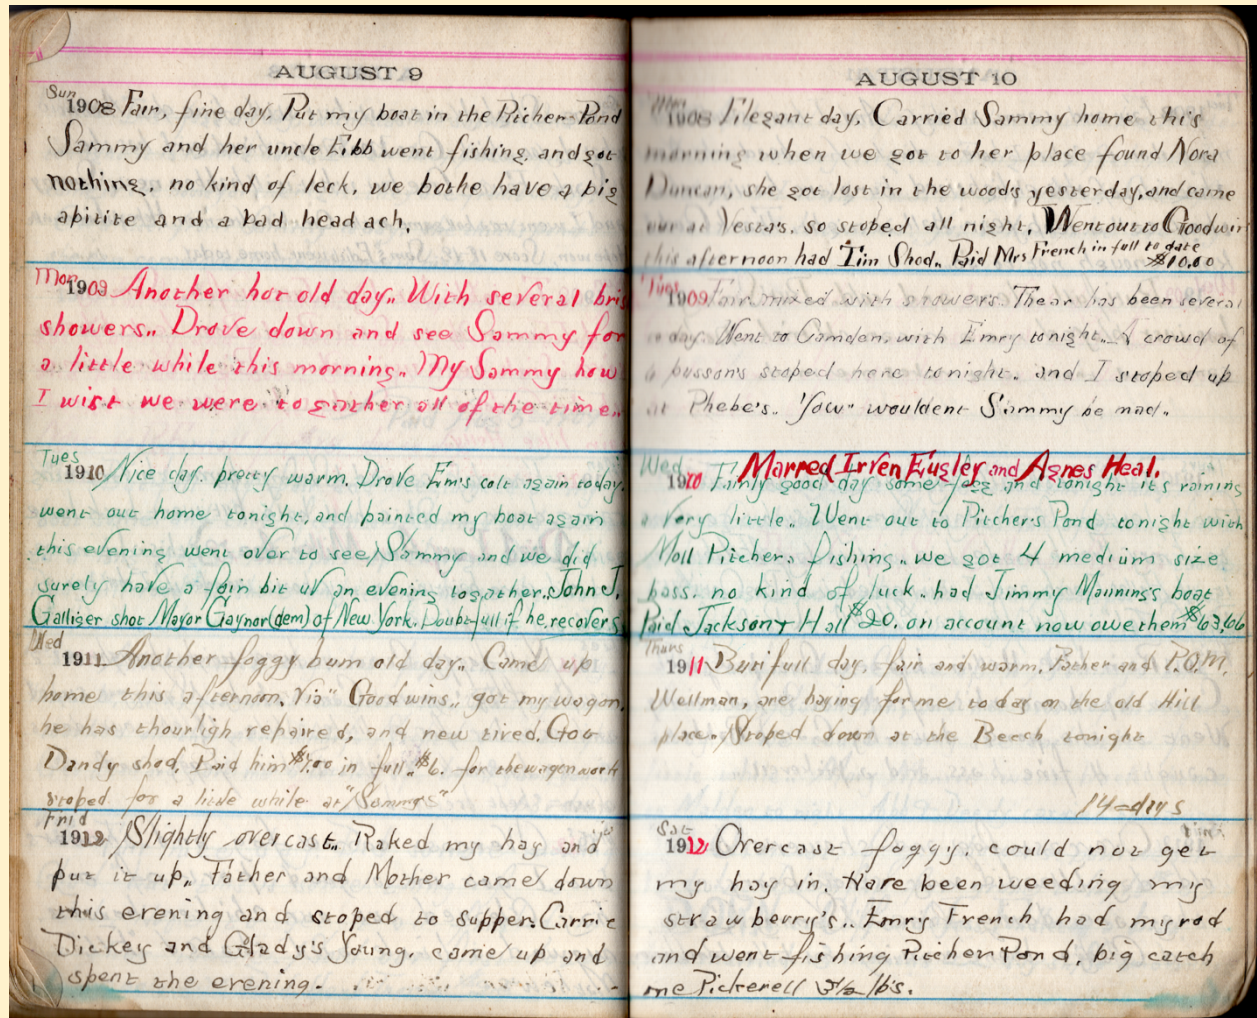 AUGUST 9
Sun
1908 Fair, fine day, Put my boat in the Pitcher Pond
Sammy and her uncle Eibb went fishing, and got
nothing, no kind of leck, we bothe have a big
apitite and a bad head ach.
Mon
1909 Another hot old day.. With several bris
showers.. Drove down and see Sammy for
a little while this morning.. My Sammy how
I wist we were to gather all of the time..
Tues
1910 Nice day. pretty warm. Drove Em's colt again today.
went out home tonight, and painted my boat again
this evening went over to see Sammy and we did
surely have a foin bit uv an evening togather.. John J.
Galliger shot Mayor Gaynor (dem) of New York. Doubtfull if he recovers
Wed
1911 Another foggy bum old day.. Came up
home this afternoon, Via" Goodwins.. got my wagon,
he has thourligh repaired, and new tired. Got
Dandy shod. Paid him $1.00 in full.. $6. for the wagon work
stoped for a little while at "Sammys"
Frid
1912 Slightly overcast.. Raked my hay and
put it up.. Father and Mother came down
this evening and stoped to supper. Carrie
Dickey and Glady's Young. came up and
spent the evening.
AUGUST 10
Mon
1908 Elegant day, Carried Sammy home this
morning when we got to her place found Nora
Duncan, she got lost in the woods yesterday, and came
out at Vesta's. so stoped all night. Went out to Goodwin
this afternoon had Tim Shod.. Paid Mrs French in full to date
$10.00
Tues
1909 Fair mixed with showers. Thear has been several
a day. Went to Camden, with Emry tonight.. A crowd of
6 pussons stoped here tonight. and I stoped up
at Phebe's.. "Yow" wouldent Sammy be mad..
Wed
Marred Irven Eugley and Agnes Heal.
1910 Fairly good day some fogg and tonight it's raining
a very little.. Went out to Pitchers Pond tonight with
Moll Pitcher. fishing.. we got 4 medium size
bass. no kind of luck.. had Jimmy Mauning's boat
Paid Jackson & Hall $20. on account now owe them $63.66
Thurs
1911 Butifull day, fair and warm. Father and P.O.M.
Wellman, are haying for me today on the old Hill
place.. Stoped down at the Beech tonight
14=days
Sat
1912 Overcast foggy. could not get
my hay in. Hare been weeding my
strawberry's.. Emry French had my rod
and went fishing Pitcher Pond, big catch
me Pickerell 3½ lb's.